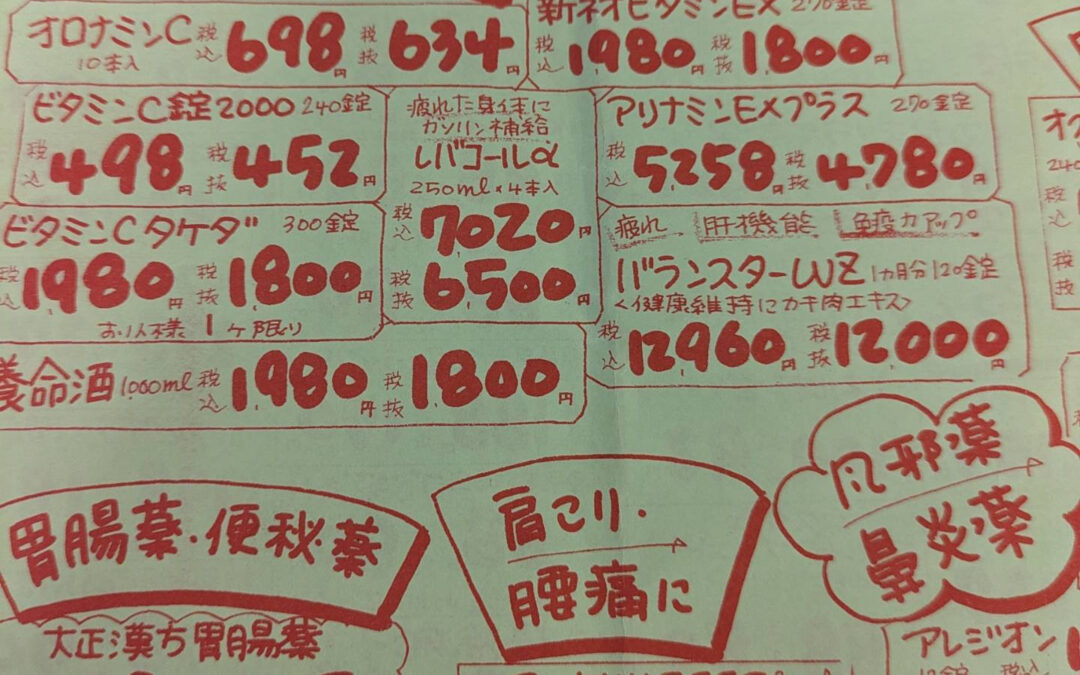 オロナミンC 税込 698円 税抜 634円
10本入
新ネオビタミンEX 270錠
税込 1980円 税抜 1800円
ビタミンC錠2000 240錠
税込 498円 税抜 452円
疲れた身体に
ガソリン補給
レバコールα
250ml×4本入
税込 7,020円
税抜 6,500円
アリナミンEXプラス 270錠
税込 5,258円 税抜 4,780円
ビタミンCタケダ 300錠
税込 1,980円 税抜 1,800円
お1人様 1ヶ限り
疲れ 肝機能 免疫力アップ
バランスターWZ 1カ月分120錠
<健康維持にカキ肉エキス>
税込 12,960円 税抜 12,000円
養命酒 1,000ml 税込 1,980円 税抜 1,800円
胃腸薬・便秘薬
肩こり・
腰痛に
風邪薬
鼻炎薬
大正漢方胃腸薬
アレジオン
12錠 税込